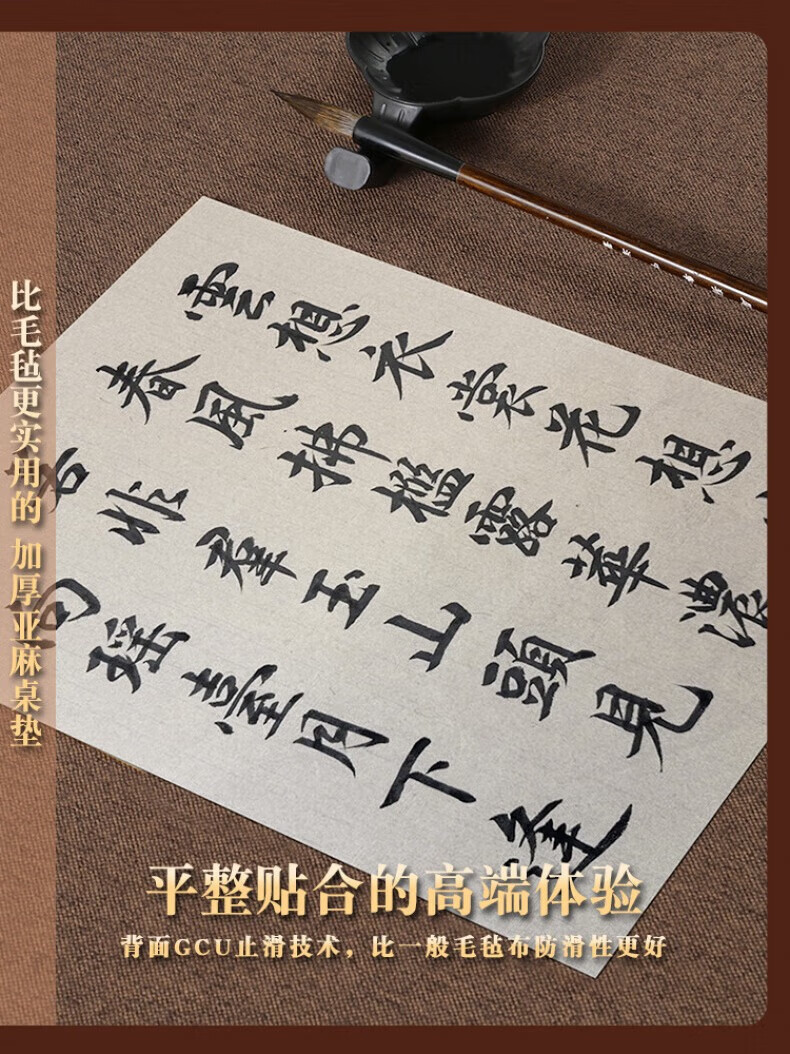 比毛毡更实用的 加厚亚麻桌垫
雲想衣裳花想
春風拂檻露華濃
若非羣玉山頭見
向瑤臺月下逢
平整贴合的高端体验
背面GCU止滑技术，比一般毛毡布防滑性更好